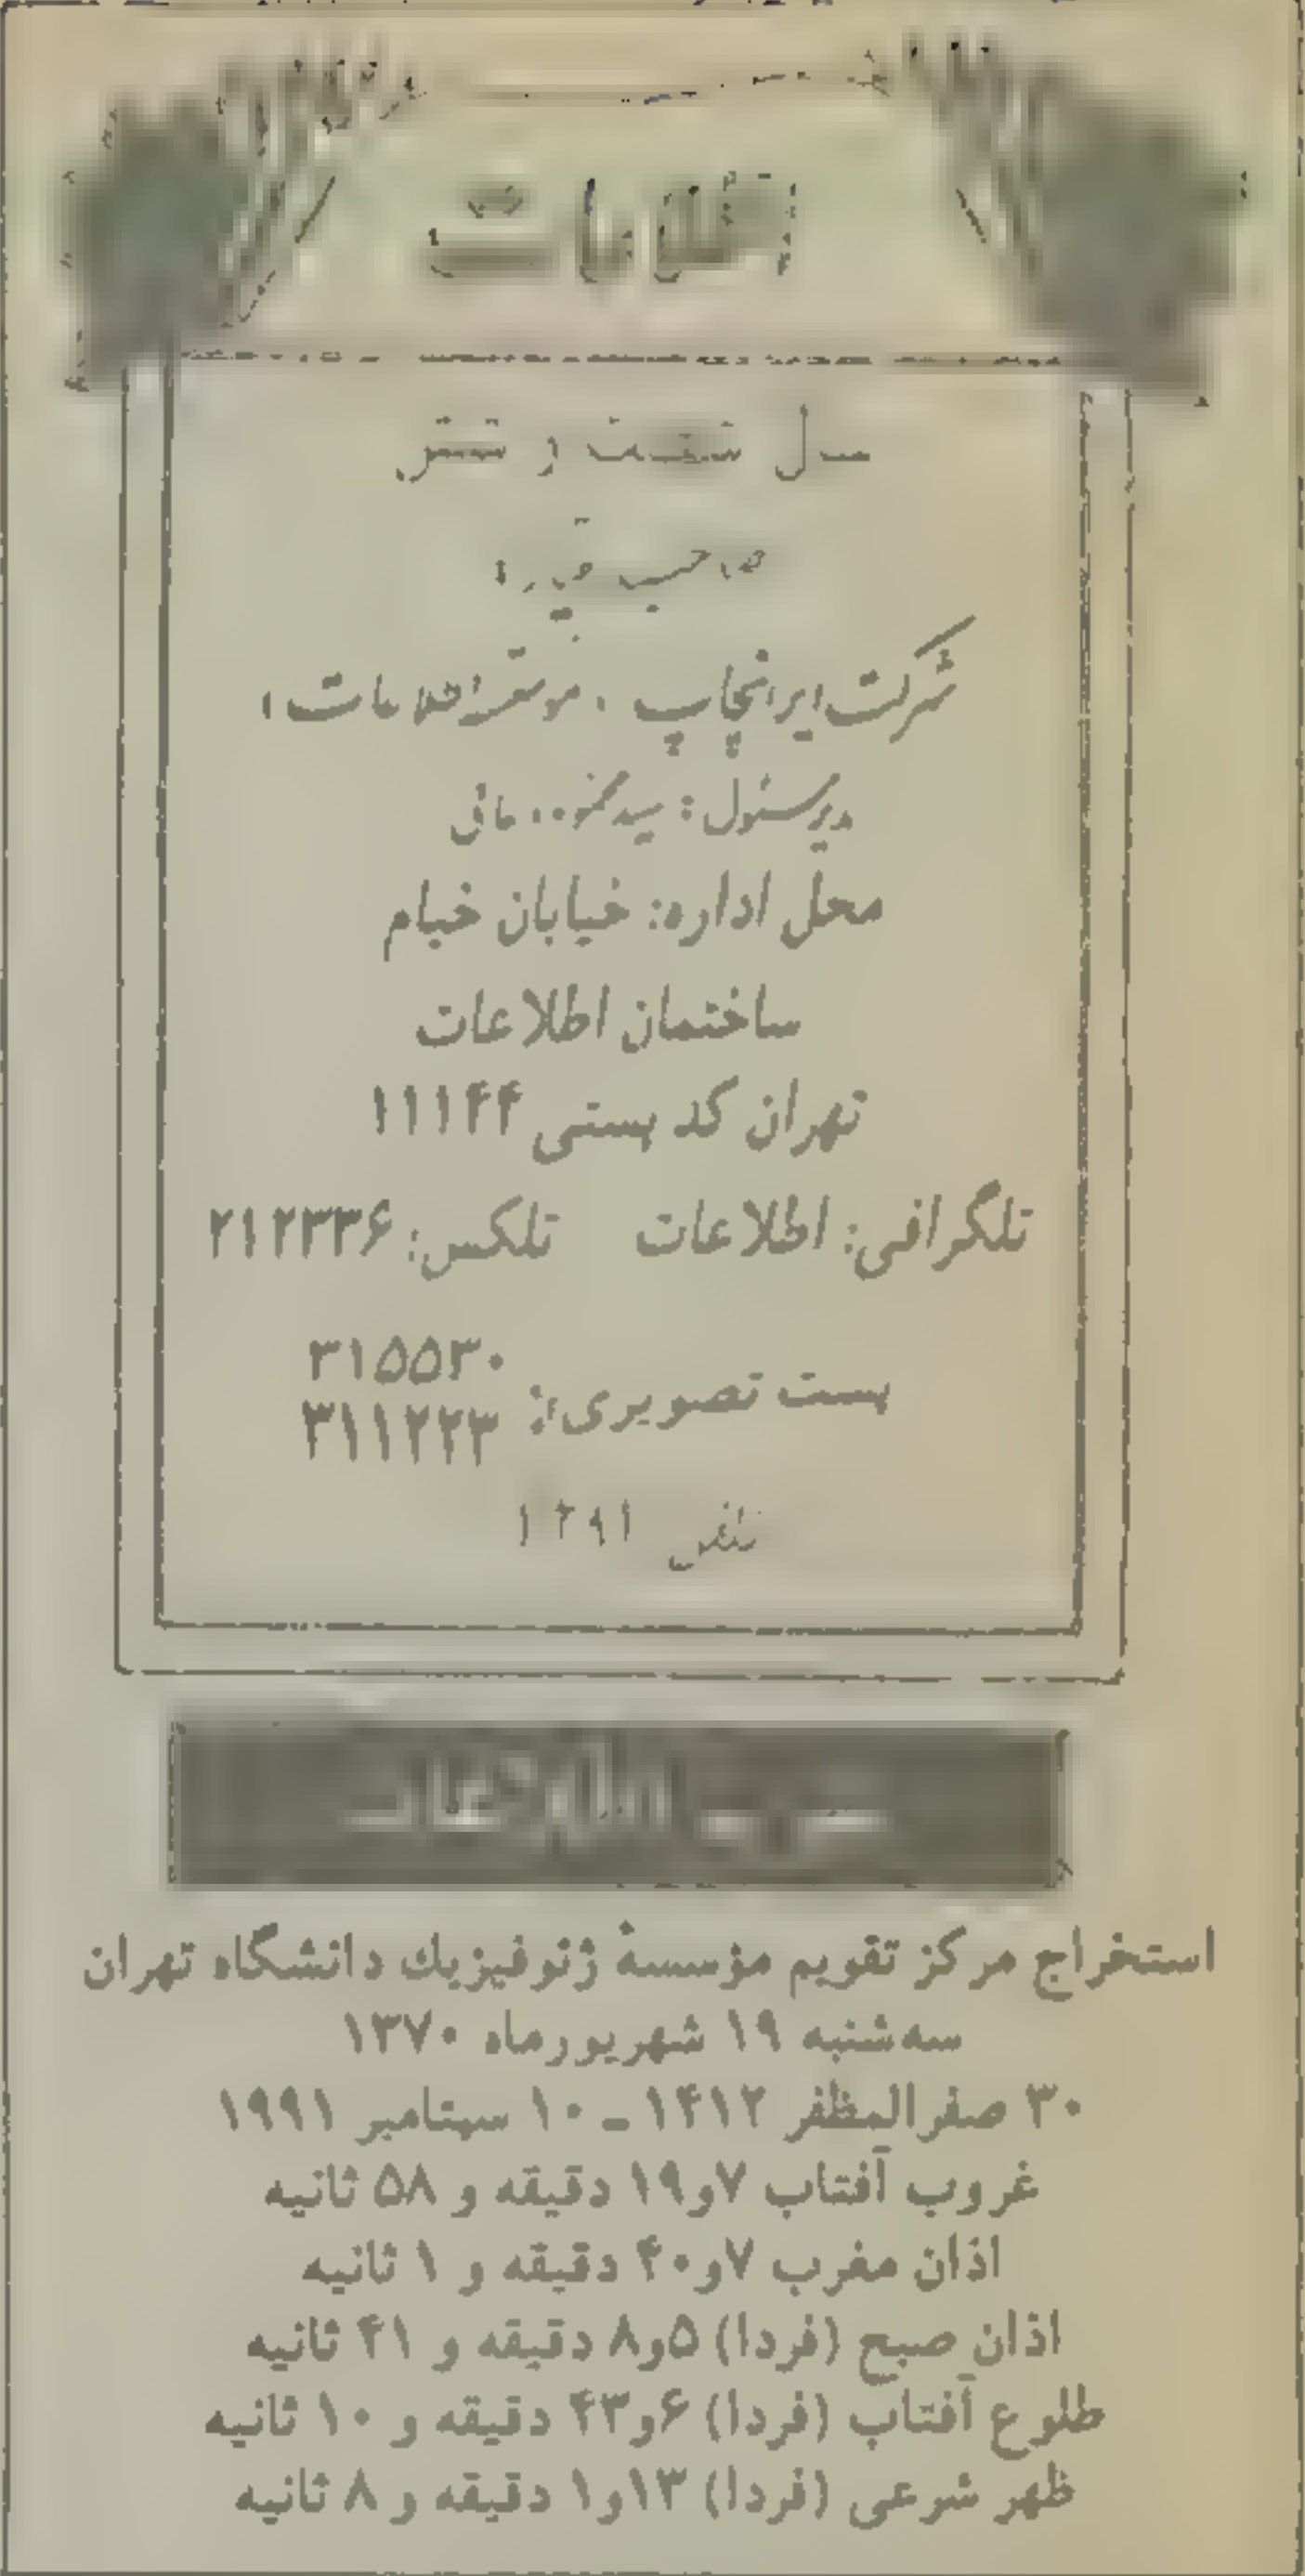 اطلاعات
سال شصت و
صاحب امتیاز:
شرکت ایرانچاپ «موسسه اطلاعات»
مدیر مسئول: سید محمود دعائی
محل اداره: خیابان خیام
ساختمان اطلاعات
تهران کد پستی ۱۱۱۴۴
تلگرافی: اطلاعات تلکس: ۲۱۲۳۳۶
پست تصویری: ۳۱۵۵۳۰
۳۱۱۲۲۳
تلفن
اطلاعات
استخراج مرکز تقویم مؤسسهٔ ژئوفیزیك دانشگاه تهران
سه‌شنبه ۱۹ شهریورماه ۱۳۷۰
۳۰ صفرالمظفر ۱۴۱۲ ـ ۱۰ سپتامبر ۱۹۹۱
غروب آفتاب ۷و۱۹ دقیقه و ۵۸ ثانیه
اذان مغرب ۷و۴۰ دقیقه و ۱ ثانیه
اذان صبح (فردا) ۵و۸ دقیقه و ۴۱ ثانیه
طلوع آفتاب (فردا) ۶و۴۳ دقیقه و ۱۰ ثانیه
ظهر شرعی (فردا) ۱۳و۱ دقیقه و ۸ ثانیه